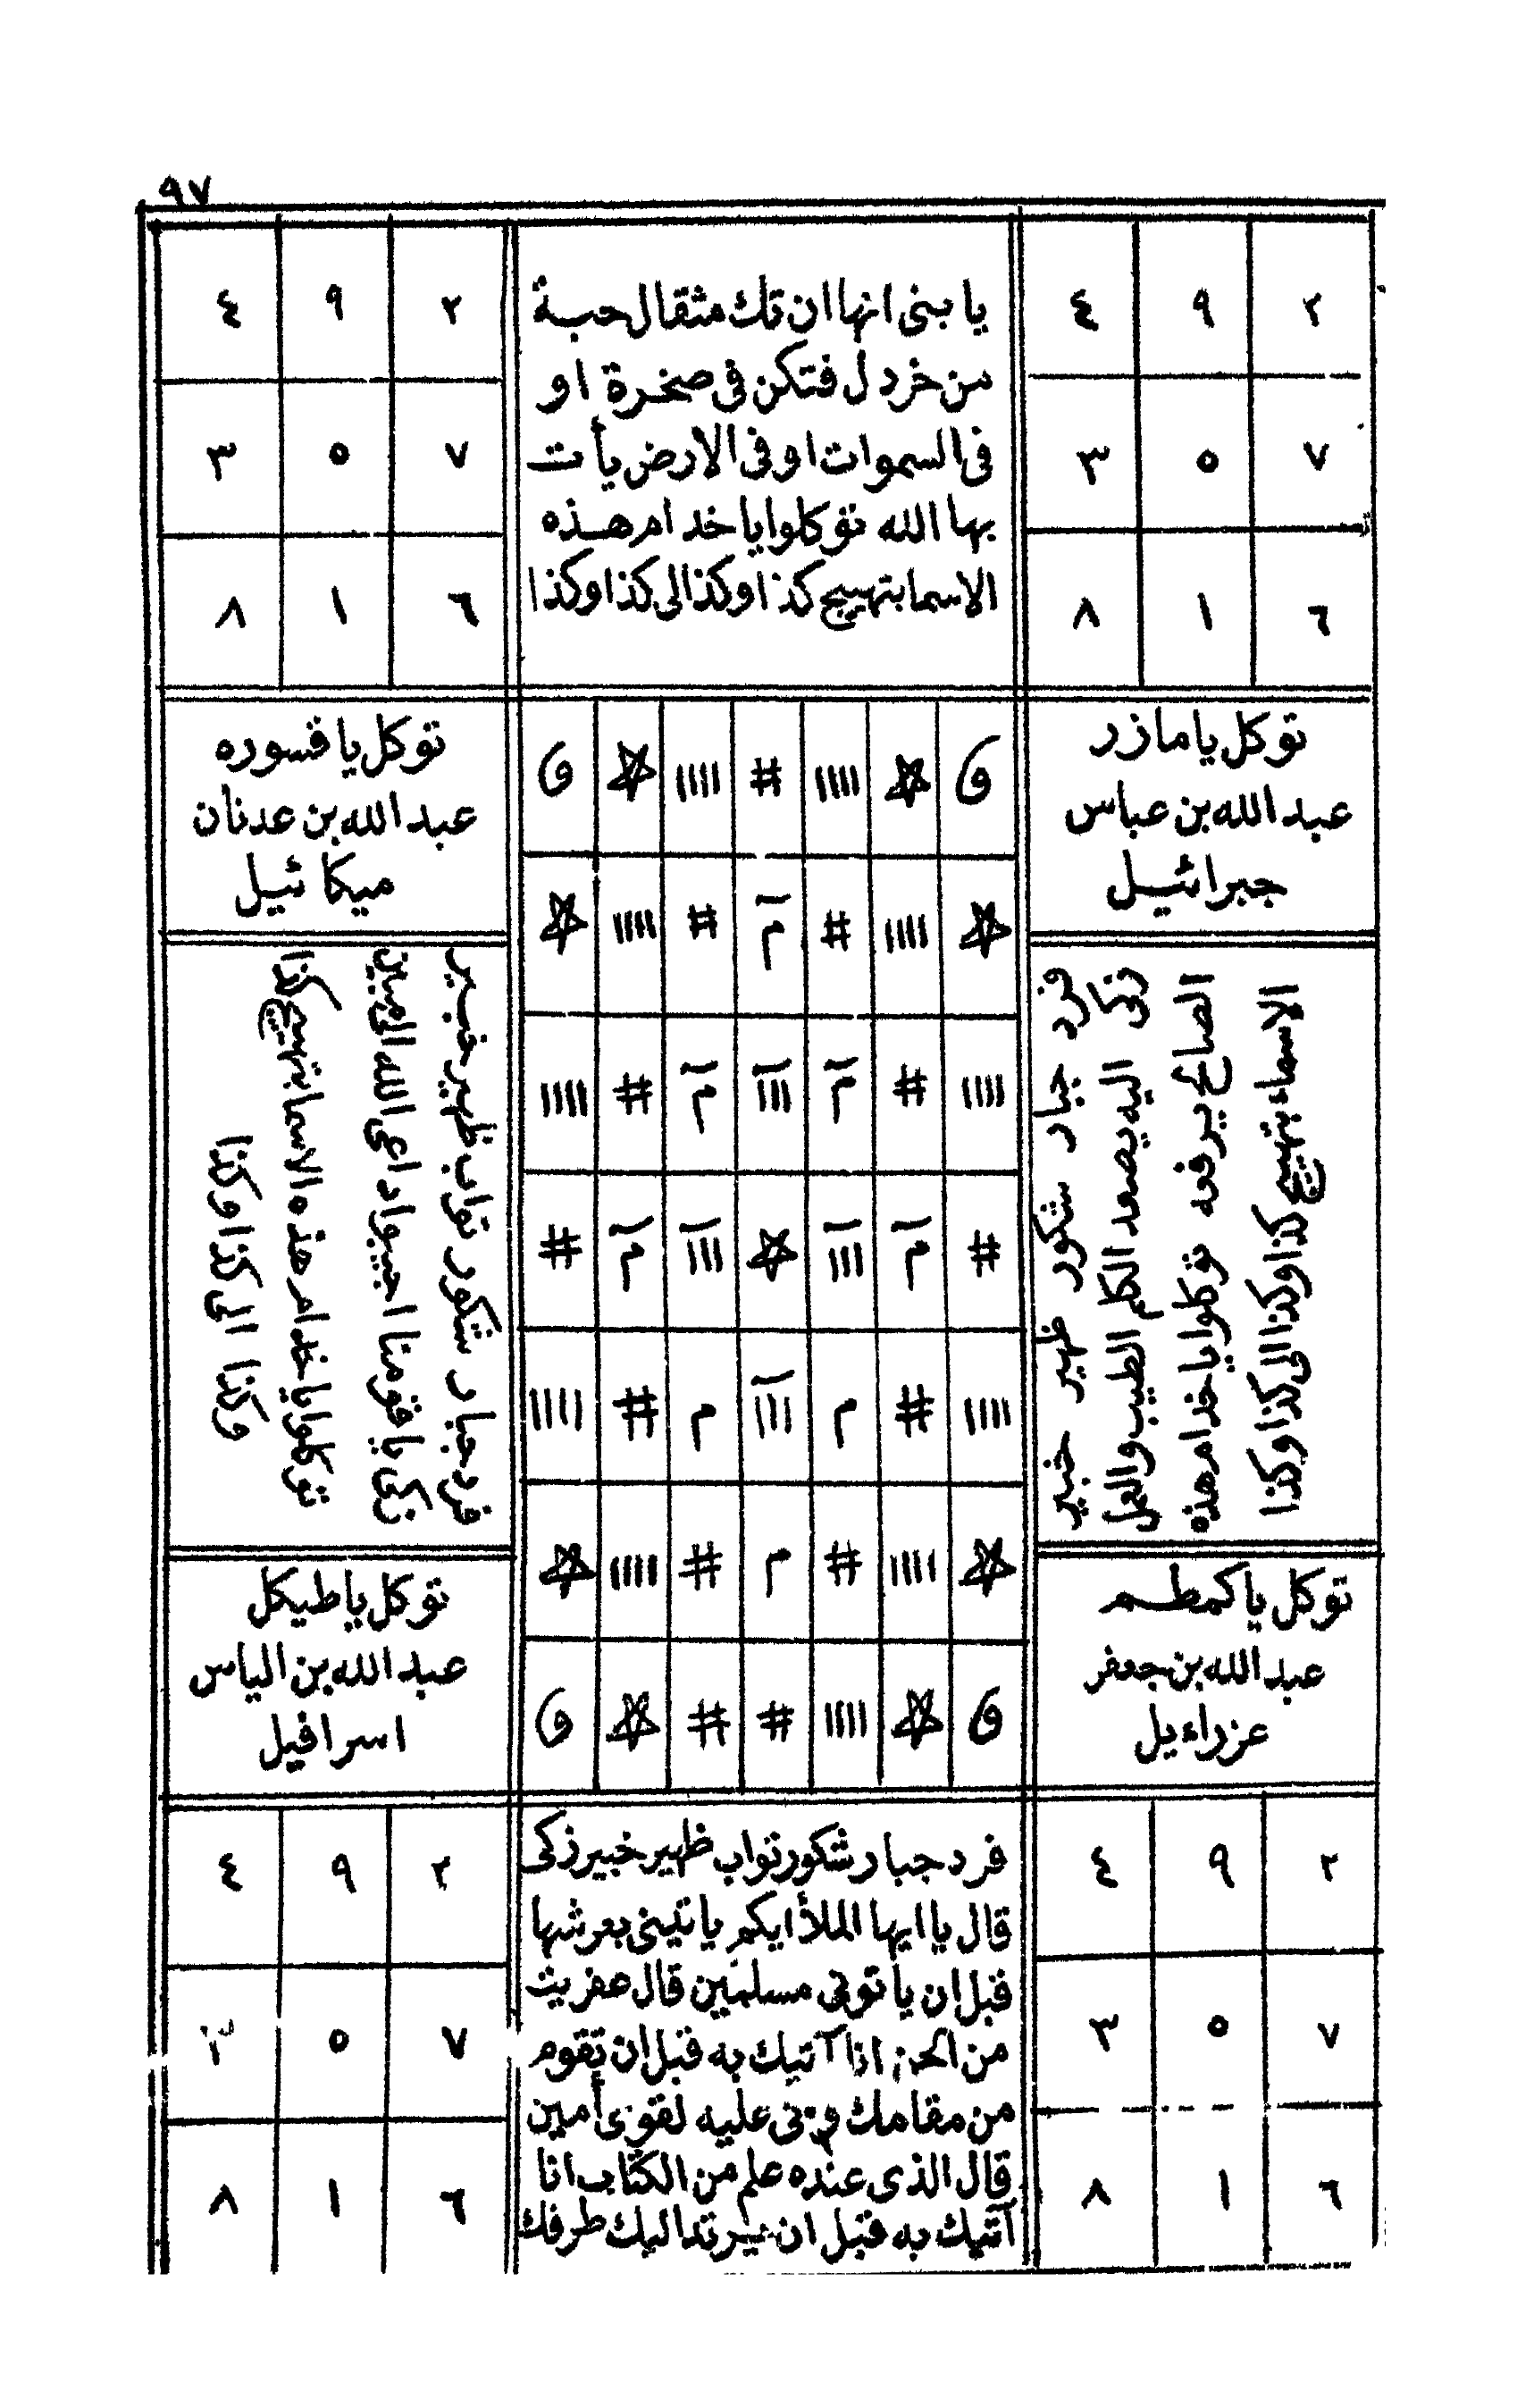 ٩٧
٢ ٩ ٤
٧ ٥ ٣
٦ ١ ٨
يا بنى انها ان تك مثقال حبة
من خردل فتكن فى صخرة او
فى السموات او فى الارض يأت
بها الله توكلوا يا خدام هذه
الاسما بتهييج كذا وكذا الى كذا وكذا
٢ ٩ ٤
٧ ٥ ٣
٦ ١ ٨
توكل يا مازر
عبد الله بن عباس
جبرائيل
توكل يا قسوره
عبد الله بن عدنان
ميكائيل
فرد جبار شكور ظهير خبير
زكى اليه يصعد الكلم الطيب والعمل
الصالح يرفعه توكلوا يا خدام هذه
الاسماء بتهييج كذا وكذا الى كذا وكذا
فرد جبار شكور تواب ظهير خبير
زكى يا قومنا اجيبوا داعى الله
توكلوا يا خدام هذه الاسما بتهييج كذا
وكذا الى كذا وكذا
توكل يا كمطم
عبد الله بن جعفر
عزراءيل
توكل يا طيكل
عبد الله بن الياس
اسرافيل
٢ ٩ ٤
٧ ٥ ٣
٦ ١ ٨
فرد جبار شكور تواب ظهير خبير زكى
قال يا ايها الملأ ايكم ياتينى بعرشها
قبل ان يأتونى مسلمين قال عفريت
من الجن انا آتيك به قبل ان تقوم
من مقامك وانى عليه لقوى أمين
قال الذى عنده علم من الكتاب انا
آتيك به قبل ان يرتد اليك طرفك
٢ ٩ ٤
٧ ٥ ٣
٦ ١ ٨